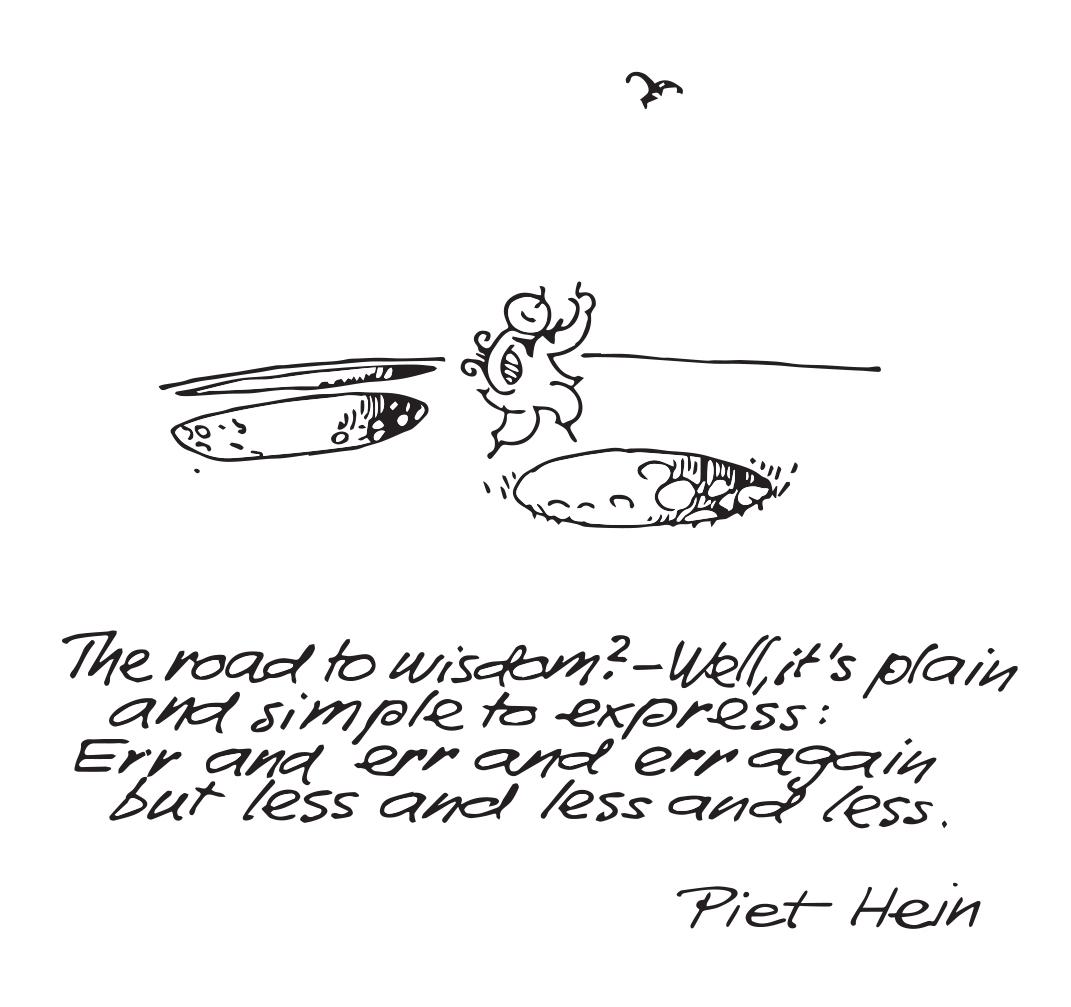 The road to wisdom? – Well, it's plain
and simple to express:
Err and err and err again
but less and less and less.
Piet Hein